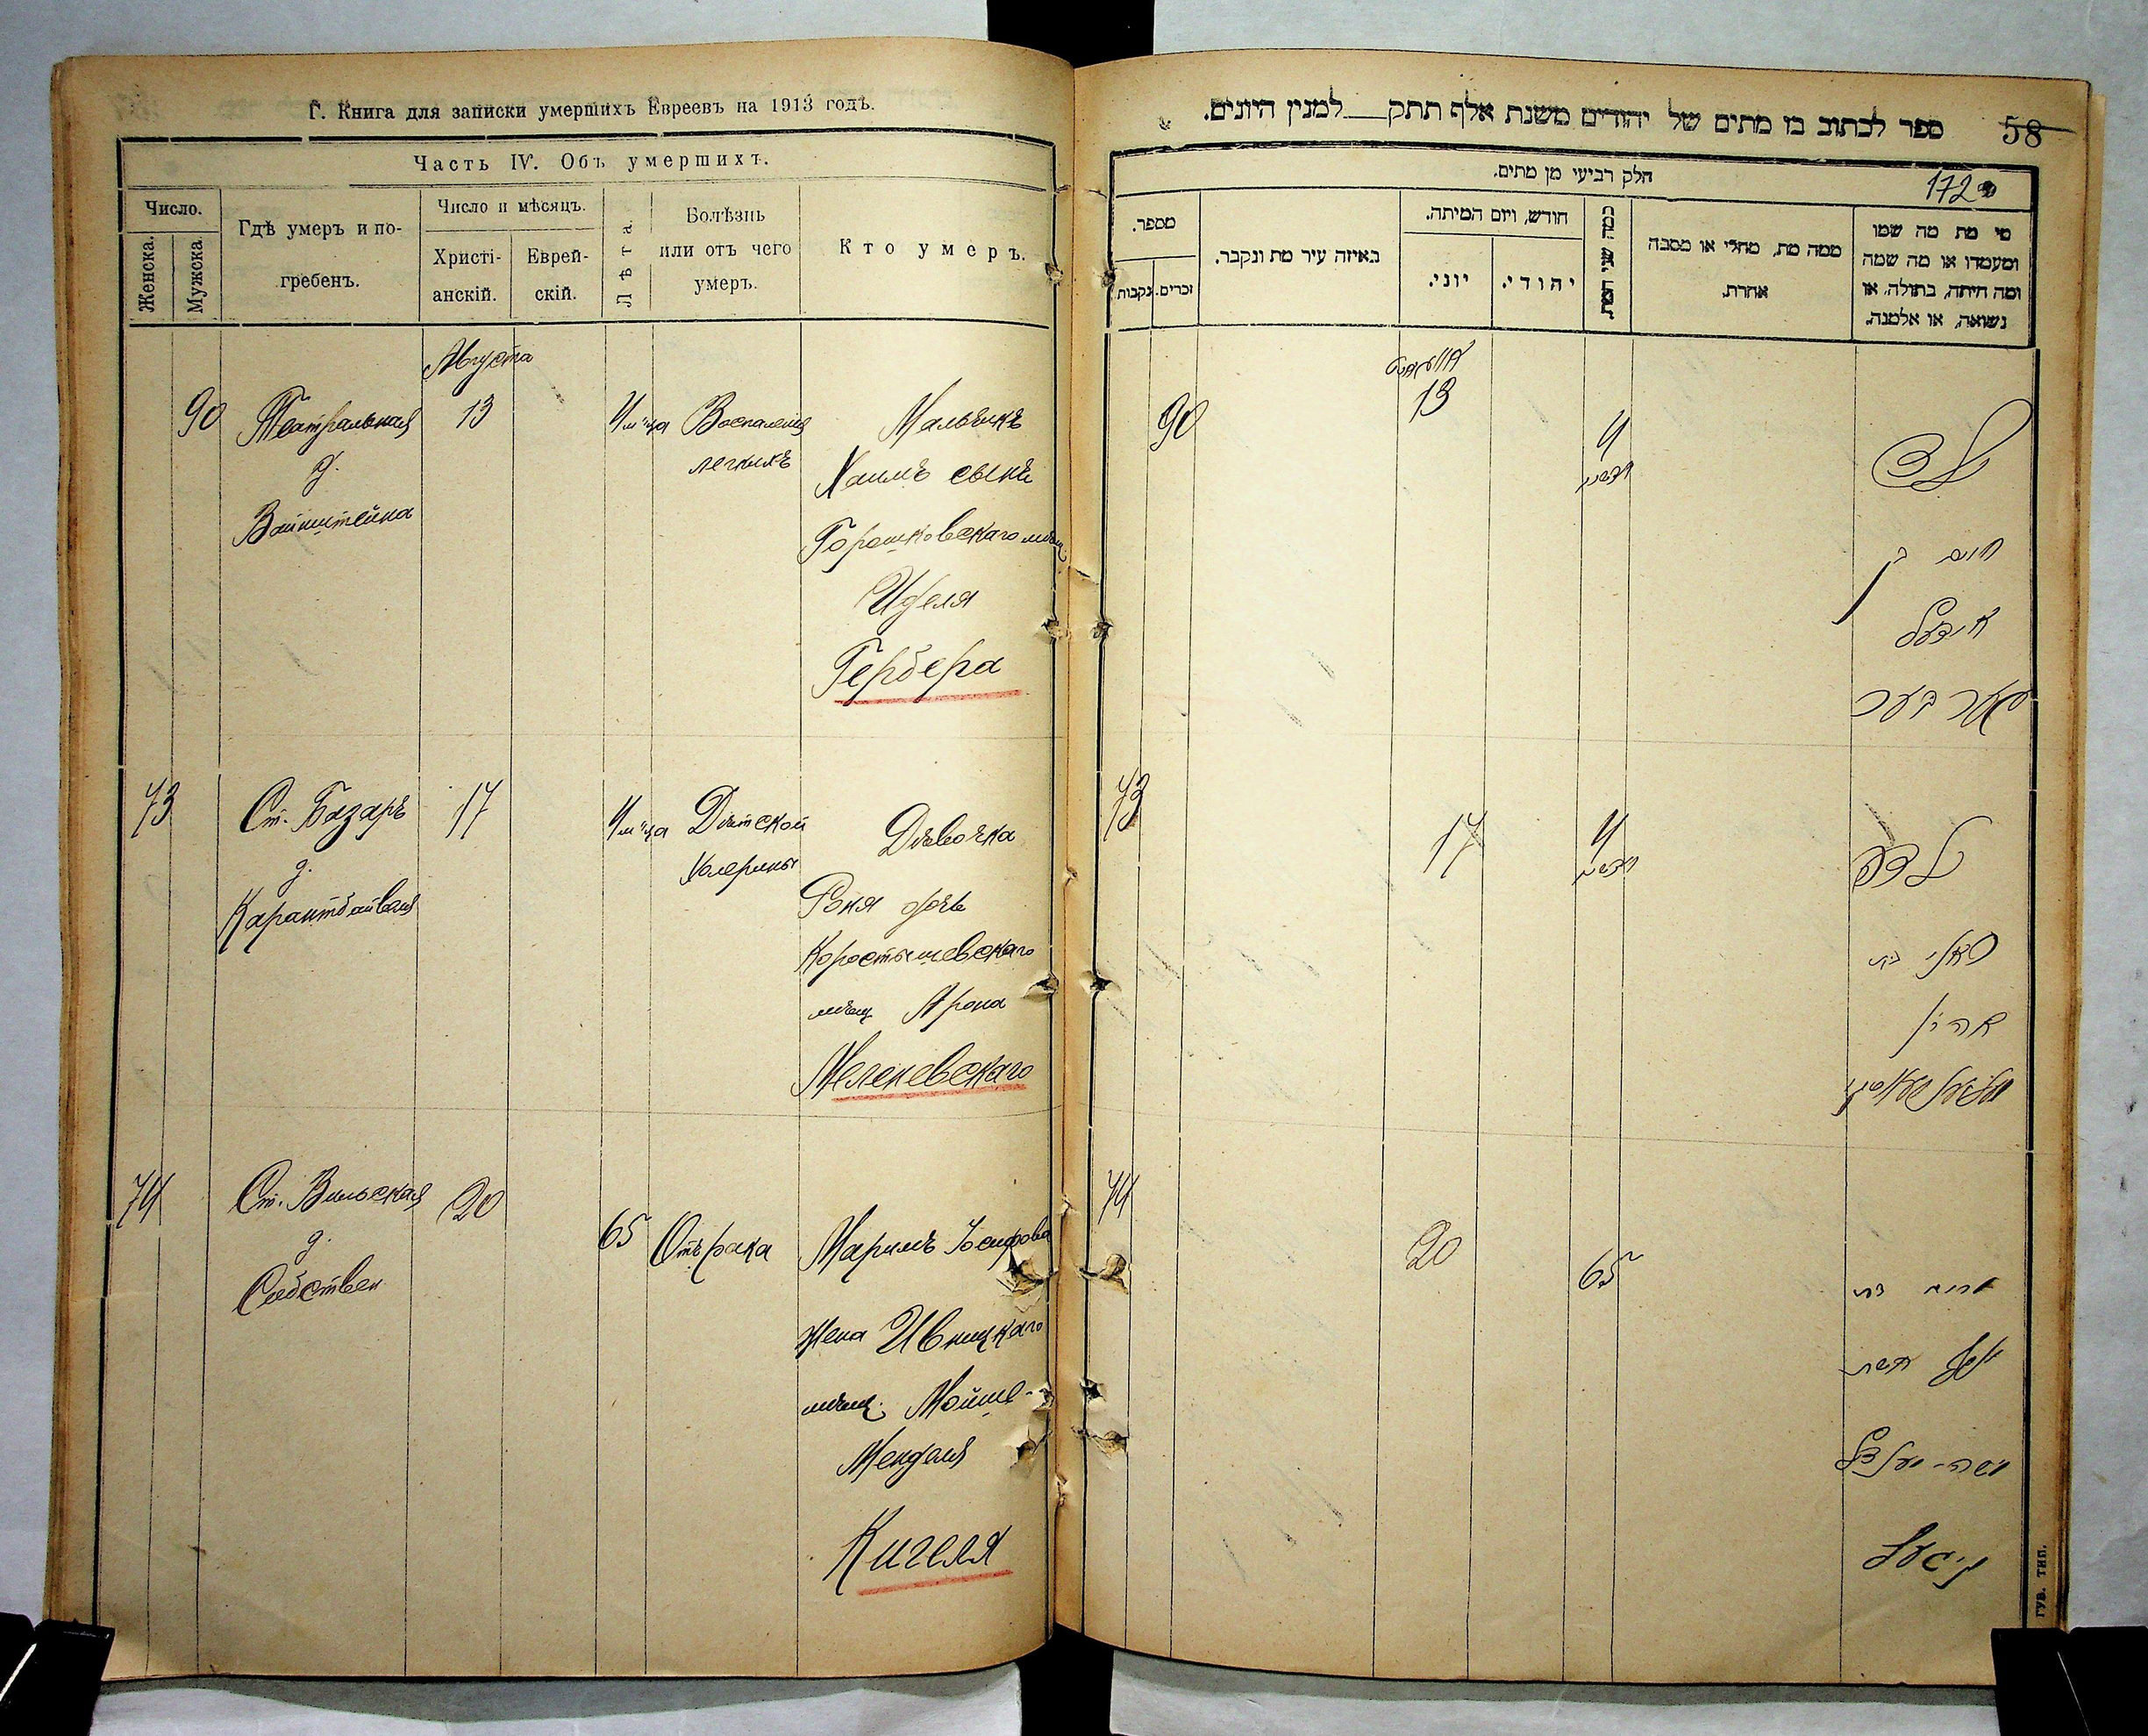 Г. Книга для записки умершихъ Евреевъ на 1913 годъ.
Часть IV. Объ умершихъ.
Число.
Женска.
Мужска.
Гдѣ умеръ и по-
гребенъ.
Число и мѣсяцъ.
Христі-
анскій.
Еврей-
скій.
Лѣта.
Болѣзнь
или отъ чего
умеръ.
Кто умеръ.
Августа
90
Театральная
д.
Вайнштейна
13
4 м-ца
Воспаленія
легкихъ
Мальчикъ
Хаимъ сынъ
Горошковскаго мѣщ.
Иделя
Гербера
73
Ст. Базаръ
д.
17
4 м-ца
Дѣтской
Холерины
Дѣвочка
Роня дочь
Коростышевскаго
мѣщ Арона
Меленевскаго
74
Ст. Вильская
д.
Собствен
20
65
Отъ рака
Маримъ Іосифова
жена Ивницкаго
мѣщ. Мойше-
Менделя
Кигеля
ספר לכתוב בו מתים של יהודים משנת אלף תתק למנין היונים.
58
חלק רביעי מן מתים.
172
מספר.
נקבות
זכרים.
באיזה עיר מת ונקבר.
חודש, ויום המיתה.
יוני.
יהודי.
כמה שני המת.
ממה מת, מחלי או מסבה
אחרת.
מי מת מה שמו
ומעמדו או מה שמה
ומה היתה, בתולה, או
נשואה, או אלמנה.
90
13
4
חדשים
ילד
חיים בן
אידעל
גערבער
73
17
4
חדשים
ילדה
ראני בת
אהרן
74
20
65
מרים בת
יוסף אשת
משה-מענדל
קיגעל
гув. тип.